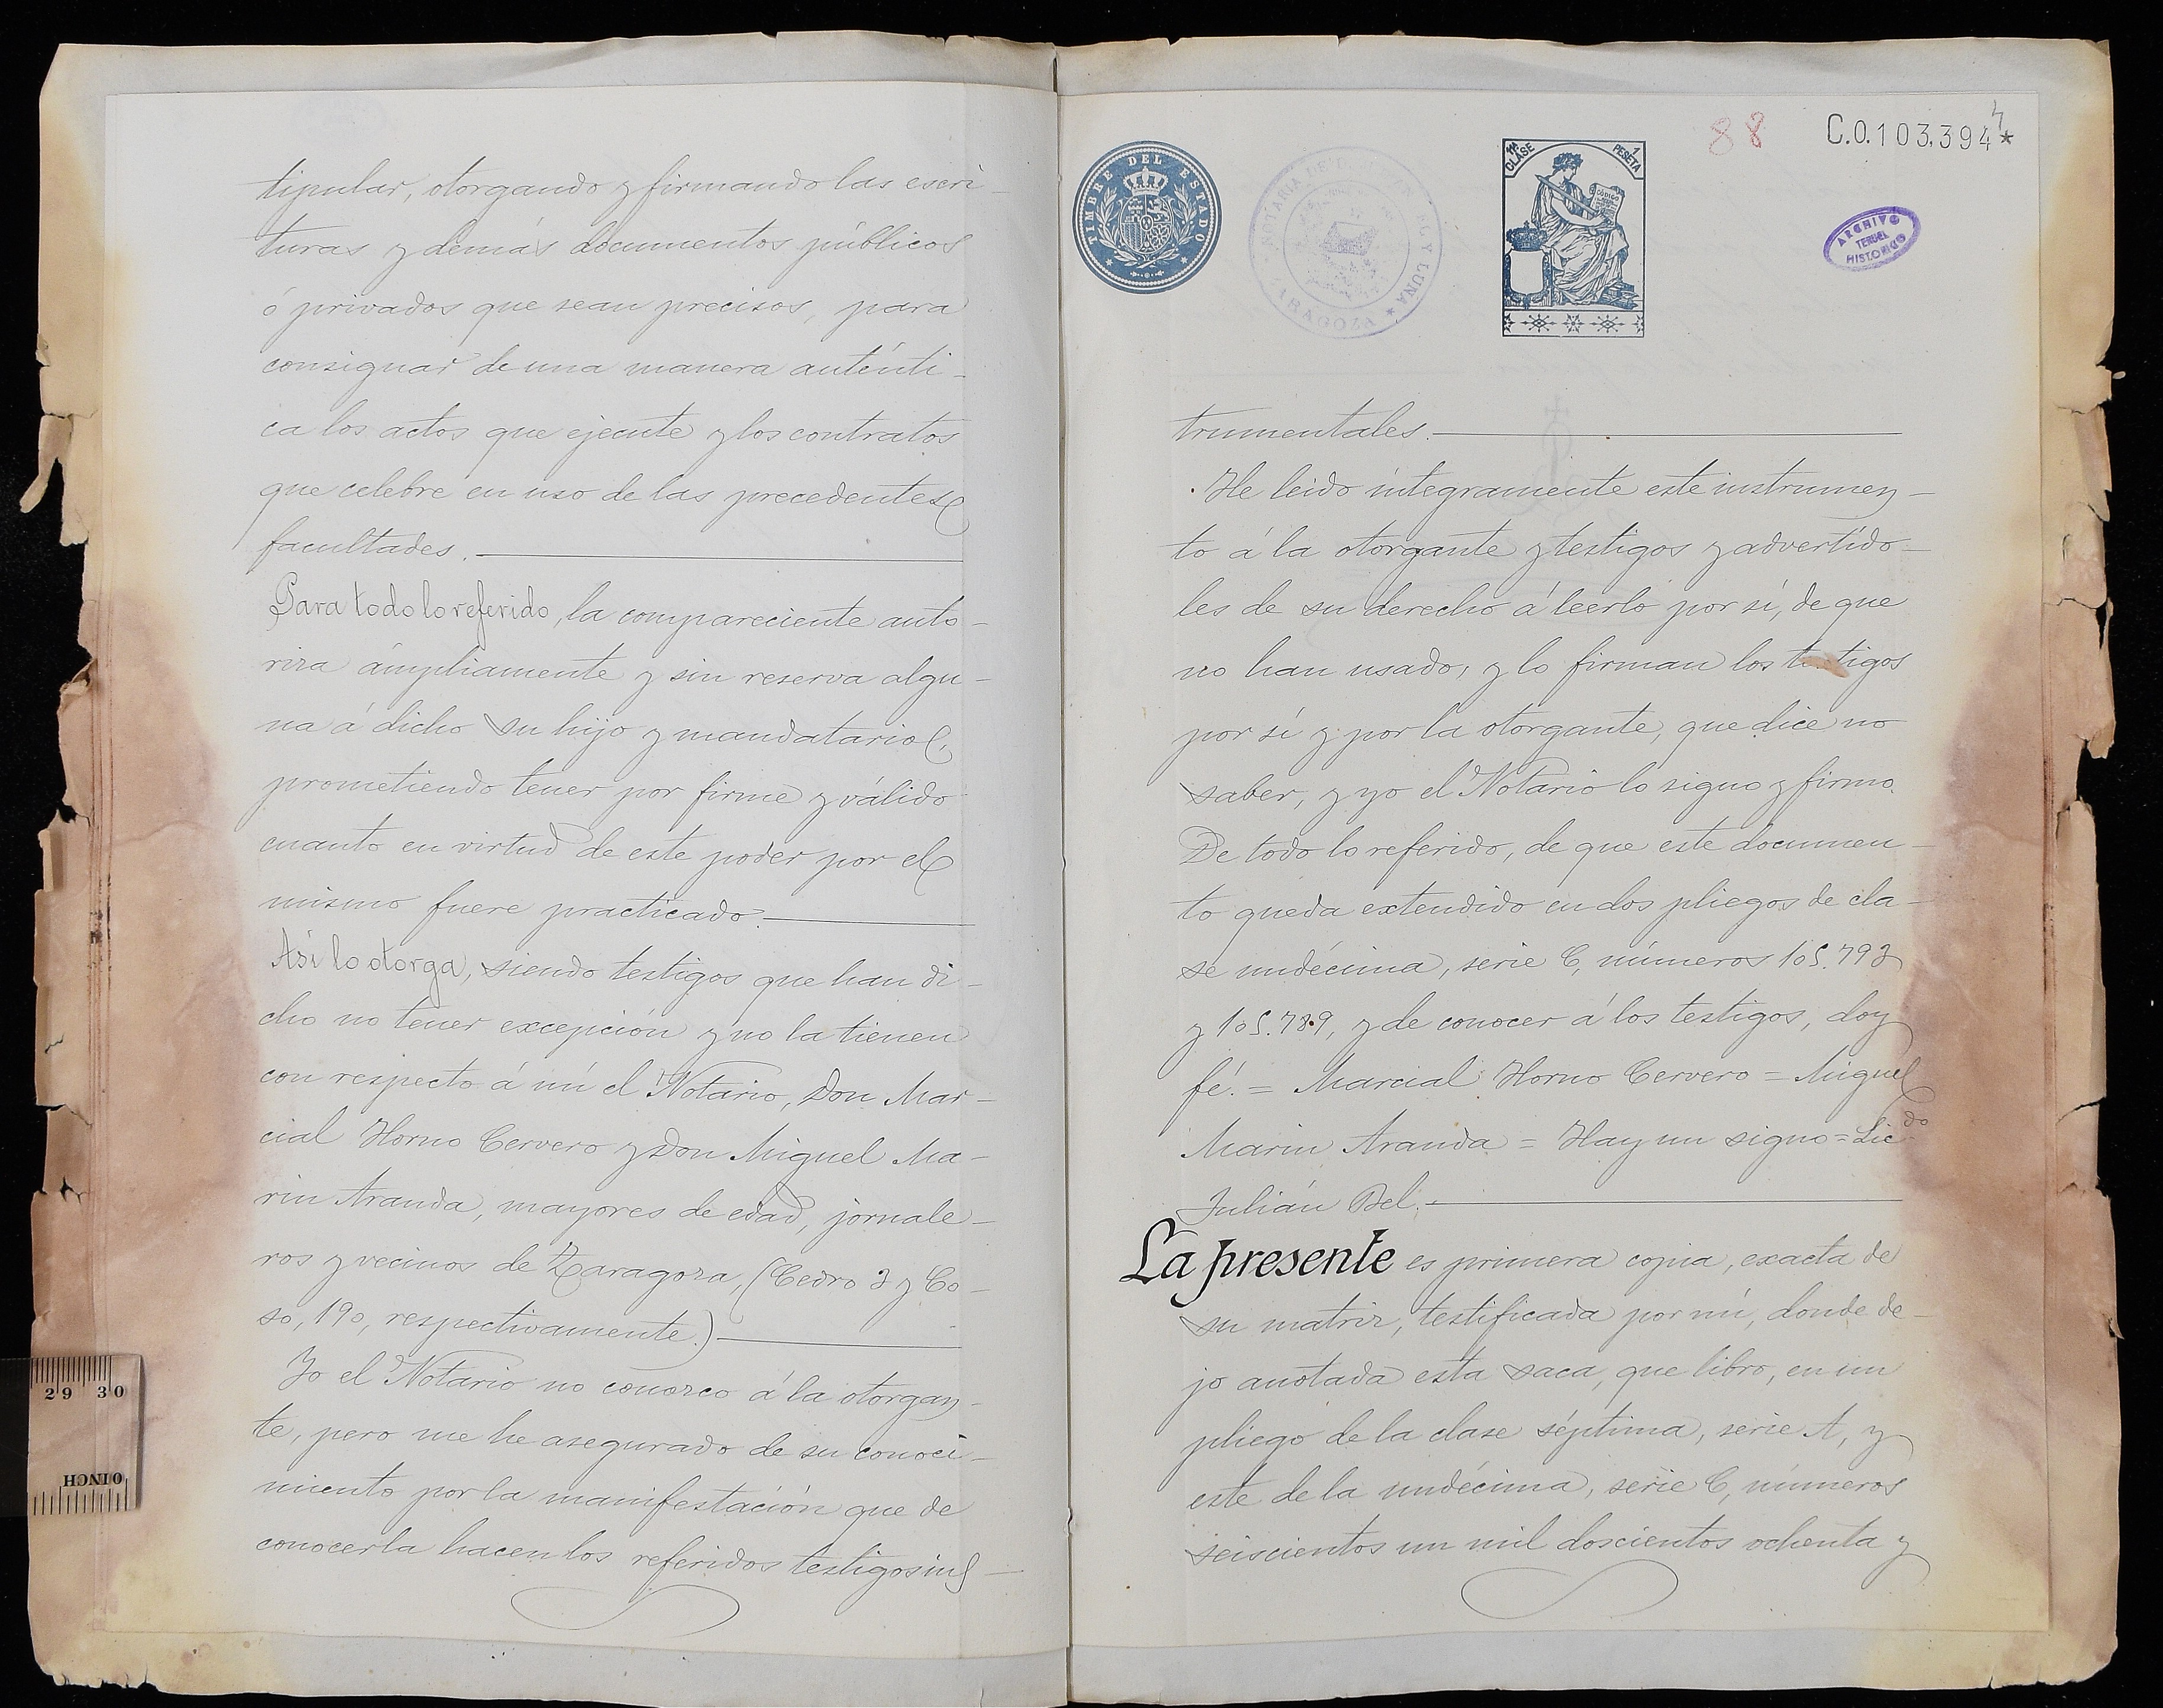 tipular, otorgando y firmando las escri-
turas y demás documentos públicos
ó privados que sean precisos, para
consignar de una manera auténti-
ca los actos que ejecute y los contratos
que celebre en uso de las precedentes
facultades.
Para todo lo referido, la compareciente auto-
riza ámpliamente y sin reserva algu-
na á dicho su hijo y mandatario,
prometiendo tener por firme y válido
cuanto en virtud de este poder por el
mismo fuere practicado.
Así lo otorga, siendo testigos que han di-
cho no tener excepción y no la tienen
con respecto á mí el Notario, Don Mar-
cial Horno Cervero y Don Miguel Ma-
rin Aranda, mayores de edad, jornale-
ros y vecinos de Zaragoza, (Cedro 3 y Co-
so, 190, respectivamente.)
Yo el Notario no conozco á la otorgan-
te, pero me he asegurado de su conoci-
miento por la manifestación que de
conocerla hacen los referidos testigos ins-
TIMBRE DEL ESTADO
NOTARIA DE D. Y LUNA ZARAGOZA
11ª CLASE
1 PESETA
CÓDIGO
88
C.0.103.394*
4
ARCHIVO
TERUEL
HISTORICO
trumentales.
He leido íntegramente este instrumen-
to á la otorgante y testigos y advertído-
les de su derecho á leerlo por sí, de que
no han usado, y lo firman los testigos
por sí y por la otorgante, que dice no
saber, y yo el Notario lo signo y firmo.
De todo lo referido, de que este documen-
to queda extendido en dos pliegos de cla-
se undécima, serie C, números 105.793
y 105.789, y de conocer á los testigos, doy
fé. = Marcial Horno Cervero = Miguel
Marin Aranda = Hay un signo = Licdo
Julián Bel.
La presente es primera copia, exacta de
su matriz, testificada por mí, donde de-
jo anotada esta saca, que libro, en un
pliego de la clase séptima, serie A, y
este de la undécima, serie C, números
seiscientos un mil doscientos ochenta y
29 30
0 INCH